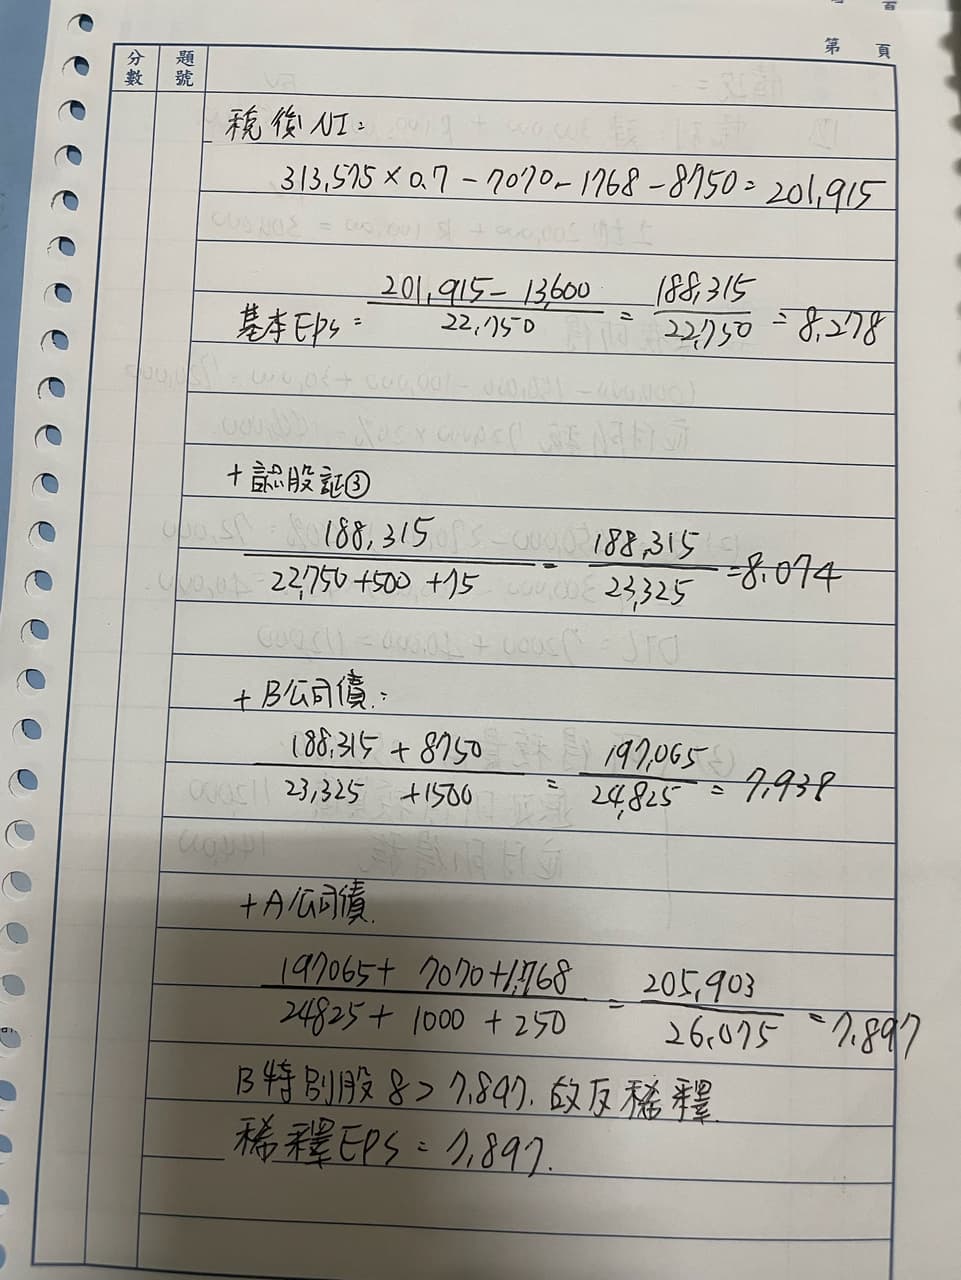 第 頁
分數
題號
稅後NI:
313,575×0.7-7070-1768-8750=201,915
基本Eps= 201,915-13,600 / 22,750 = 188,315 / 22,750 = 8,278
+認股証③
188,315 / 22,750+500+75 = 188,315 / 23,325 =8.074
+B公司債:
188,315+8750 / 23,325 +1500 = 197,065 / 24,825 = 7,938
+A公司債.
197065+7070+1,768 / 24825+1000+250 = 205,903 / 26,075 = 7,897
B特別股8>7,897.故反稀釋.
稀釋EPS=7,897.